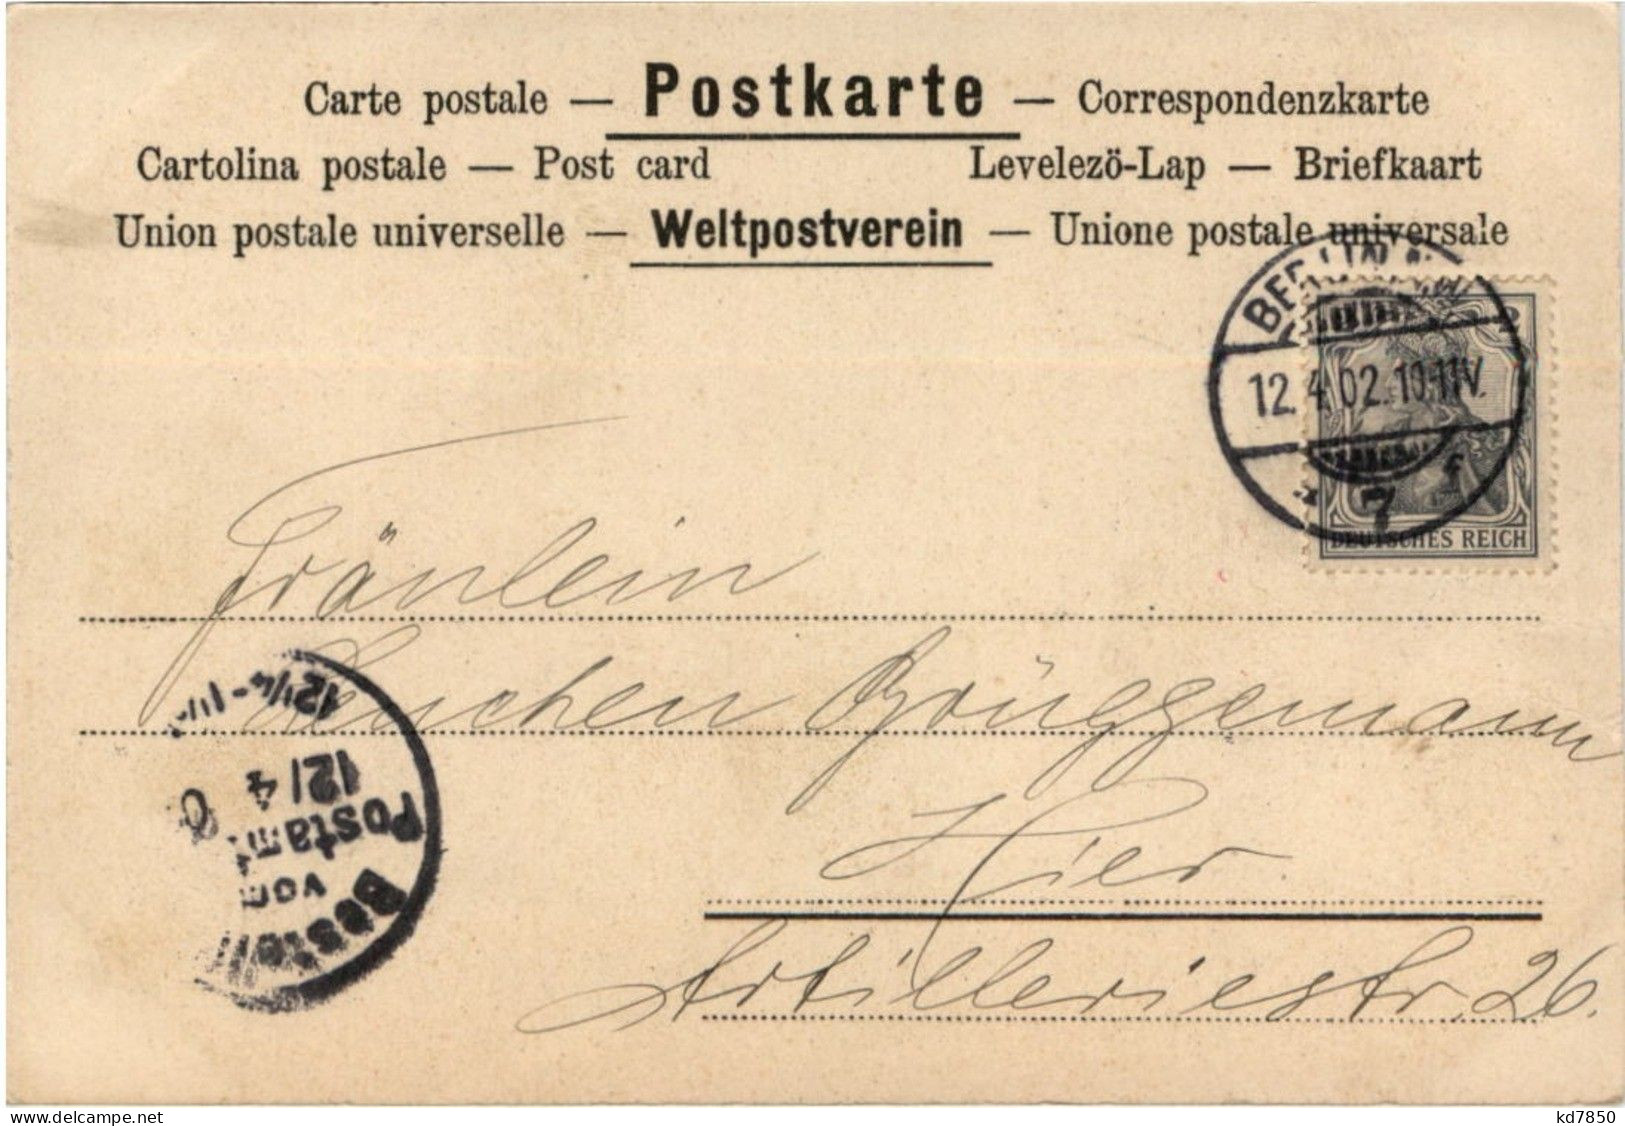 Carte postale — Postkarte — Correspondenzkarte
Cartolina postale — Post card Levelezö-Lap — Briefkaart
Union postale universelle — Weltpostverein — Unione postale universale
BERLIN
2
12.4.02.10-11V.
* 7 f
DEUTSCHES REICH
Fräulein
Lenchen Brüggemann
Hier.
Artilleriestr. 26.
Bestellt
vom
Postamt
12/4
delcampe.net
kd7850